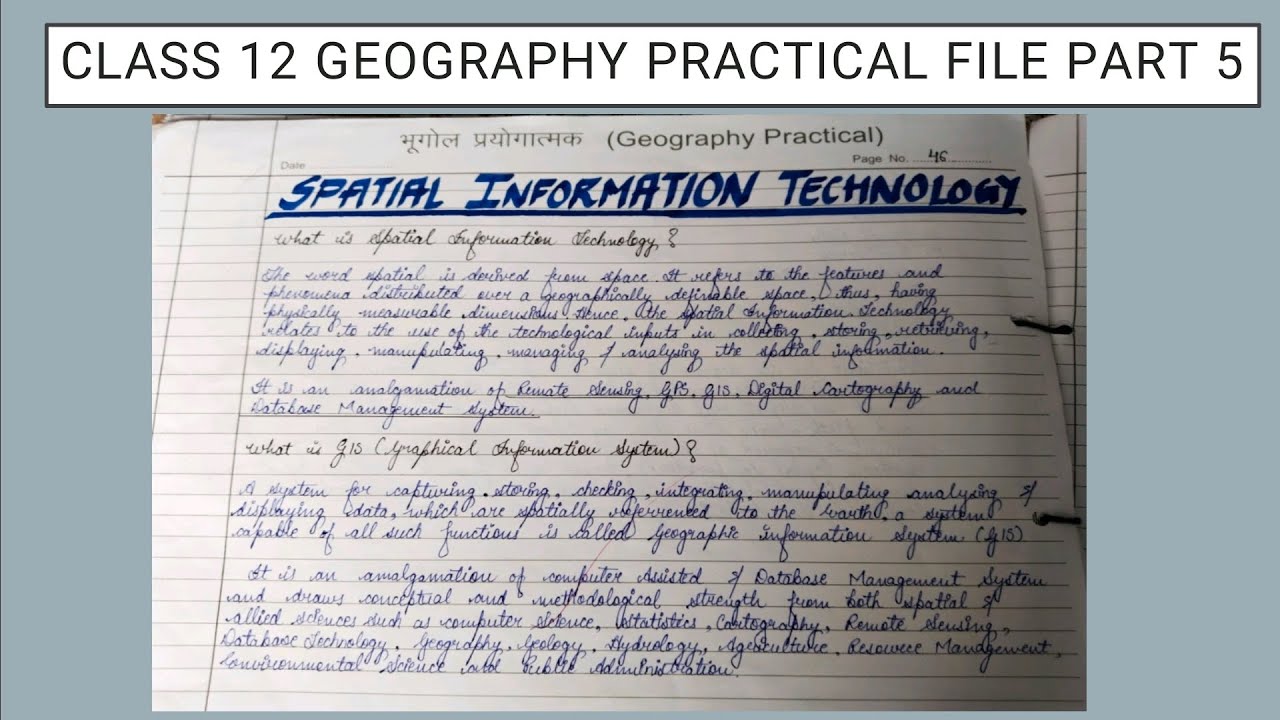 CLASS 12 GEOGRAPHY PRACTICAL FILE PART 5
भूगोल प्रयोगात्मक (Geography Practical)
Date
Page No. 46
SPATIAL INFORMATION TECHNOLOGY
What is Spatial Information Technology?
The word spatial is derived from space. It refers to the features and
phenomena distributed over a geographically definable space, thus, having
physically measurable dimensions. Hence, the Spatial Information Technology
relates to the use of the technological inputs in collecting, storing, retrieving,
displaying, manupulating, managing & analysing the spatial information.
It is an amalgamation of Remote Sensing, GPS, GIS, Digital Cartography and
Database Management System.
What is GIS (Graphical Information System)?
A system for capturing, storing, checking, integrating, manupulating analysing &
displaying data, which are spatially referenced to the Earth, a system
capable of all such functions is called Geographic Information System (GIS)
It is an amalgamation of computer Assisted & Database Management System
and draws conceptual and methodological strength from both spatial &
allied sciences such as computer science, statistics, Cartography, Remote Sensing,
Database Technology, Geography, Geology, Hydrology, Agriculture, Resource Management,
Environmental Science and Public Administration.